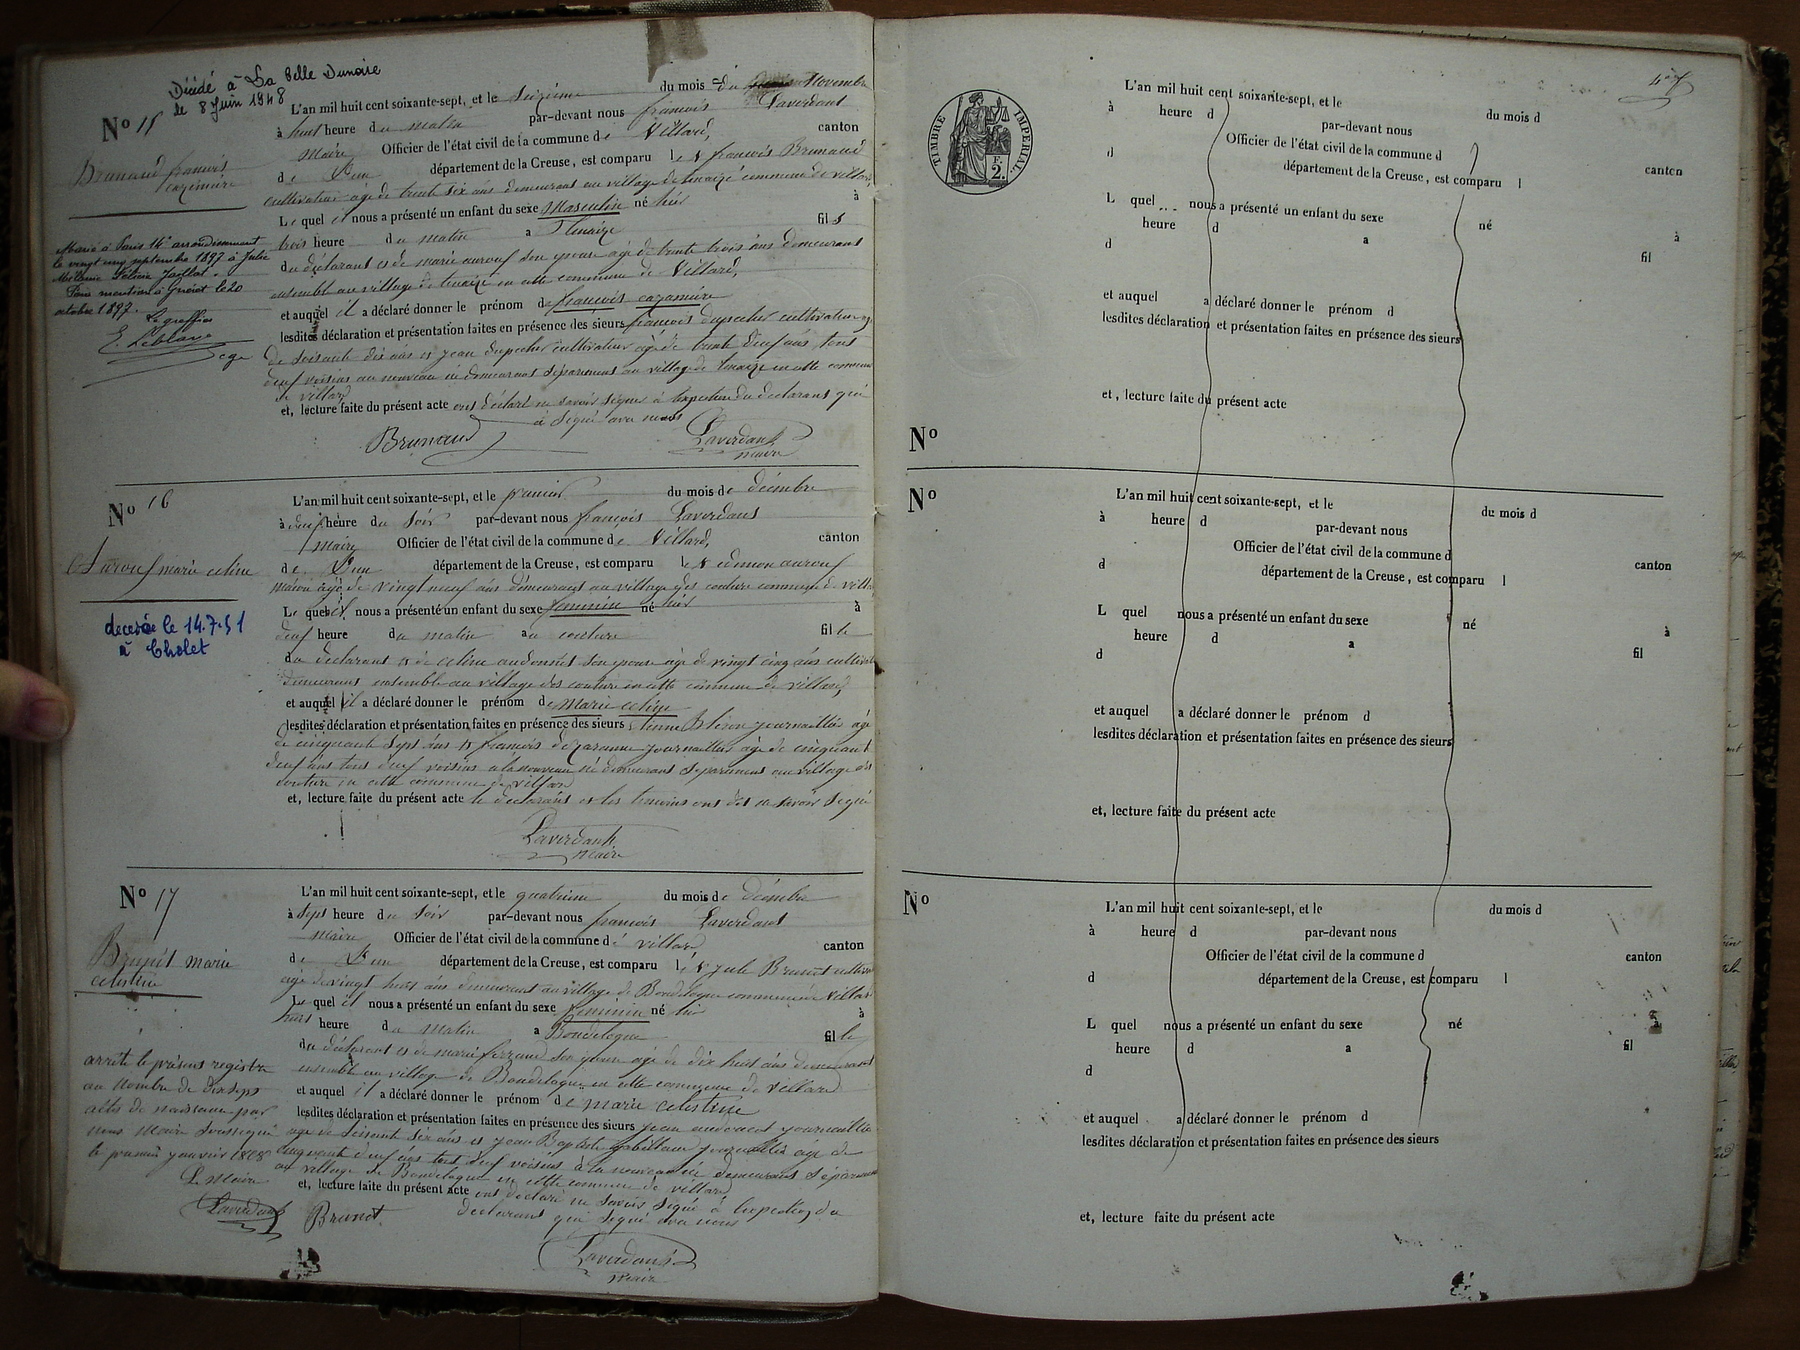 Décédé à La Celle Dunoise
le 8 Juin 1948
No 15
L'an mil huit cent soixante-sept, et le Seizième du mois de Novembre
à huit heure du matin par-devant nous françois Laverdant
Maire Officier de l'état civil de la commune de Villard, canton
de Dun département de la Creuse, est comparu le s françois Brunaud
Brunaud françois
cazimire
cultivateur agé de trente six ans demeurant au village de commune de villard
Le quel il nous a présenté un enfant du sexe Masculin né hier à
trois heure du matin a fils
du déclarant et de marie aurouf son épouse agé de trente trois ans demeurant
ensemble au village de en cette commune de Villard,
et auquel il a déclaré donner le prénom de françois cazimire
lesdites déclaration et présentation faites en présence des sieurs françois cultivateur agé
de soisante dix ans et jean cultivateur agé de trente neuf ans tous
deux voisins au nouveau né demeurant séparément au village de en cette commune
de villard
et, lecture faite du présent acte ont déclaré ne savoir signer à l'exception du declarant qui
à signé avec nous
Brunaud Laverdant
maire
Marié à Paris 14e arrondissement
le vingt cinq septembre 1897 à Julie
Mélanie Félicie Jaillat.
Pour mention à Guéret le 20
octobre 1897.
Le greffier
E. Leblanc
No 16
L'an mil huit cent soixante-sept, et le premier du mois de décembre
à deux heure du Soir par-devant nous françois Laverdant
Maire Officier de l'état civil de la commune de Villard, canton
de Dun département de la Creuse, est comparu le s edmon aurouf
Aurouf marie celine
macon agé de vingt neuf ans demeurant au village des couture commune de villard
Le quel il nous a présenté un enfant du sexe feminin né hier à
neuf heure du matin au couture fille
du déclarant et de celine audonnet son épouse agé de vingt cinq ans
demeurant ensemble au village des couture en cette commune de villard
et auquel il a déclaré donner le prénom de Marie celine
lesdites déclaration et présentation faites en présence des sieurs journallier agé
de cinquante sept ans et françois journallier agé de cinquante
neuf ans tous deux voisins a la nouveau né demeurant séparément au village des
couture en cette commune de villard
et, lecture faite du présent acte le declarant et les temoins ont dit ne savoir signé
Laverdant
Maire
decedée le 14.7.51
à Cholet
No 17
L'an mil huit cent soixante-sept, et le quatrième du mois de décembre
à sept heure du Soir par-devant nous françois Laverdant
Maire Officier de l'état civil de la commune de villard canton
de Dun département de la Creuse, est comparu le s jule Brunet
Brunet marie
celestine
agé de vingt huit ans demeurant au village de Boudelogne commune de villard
Le quel il nous a présenté un enfant du sexe feminin né hier à
heure du matin a Boudelogne fille
du déclarant et de marie ferrand son épouse agé de dix huit ans demeurant
ensemble au village de Boudelogne en cette commune de villard
et auquel il a déclaré donner le prénom de marie celestine
lesdites déclaration et présentation faites en présence des sieurs jean journallier
agé de soisante six ans et jean Baptiste journallier agé de
cinquante neuf ans tout deux voisins à la nouveau né demeurant séparément
au village de Boudelogne en cette commune de villard
et, lecture faite du présent acte ont déclaré ne savoir signé à l'exception du
declarant qui signé avec nous
Brunet
Laverdant
Maire
arrêté le présent registre
au nombre de dix sept
actes de naissance par
nous Maire soussigné
le premier janvier 1868
Le Maire
Laverdant
47
TIMBRE IMPERIAL.
F.
2.
L'an mil huit cent soixante-sept, et le du mois d
à heure d par-devant nous
Officier de l'état civil de la commune d canton
d département de la Creuse, est comparu l
L quel nous a présenté un enfant du sexe né à
heure d a fil
d
et auquel a déclaré donner le prénom d
lesdites déclaration et présentation faites en présence des sieurs
et, lecture faite du présent acte
No
No
L'an mil huit cent soixante-sept, et le du mois d
à heure d par-devant nous
Officier de l'état civil de la commune d
d département de la Creuse, est comparu l canton
L quel nous a présenté un enfant du sexe né à
heure d a fil
d
et auquel a déclaré donner le prénom d
lesdites déclaration et présentation faites en présence des sieurs
et, lecture faite du présent acte
No
L'an mil huit cent soixante-sept, et le du mois d
à heure d par-devant nous
Officier de l'état civil de la commune d canton
d département de la Creuse, est comparu l
L quel nous a présenté un enfant du sexe né à
heure d a fil
d
et auquel a déclaré donner le prénom d
lesdites déclaration et présentation faites en présence des sieurs
et, lecture faite du présent acte